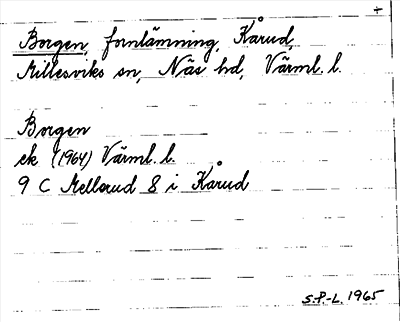 +
Borgen, fornlämning, Kårud,
Millesviks sn, Näs hd, Värml. l.
Borgen
ek (1964) Värml. l.
9 C Mellerud 8 i Kårud
S.P.-L. 1965